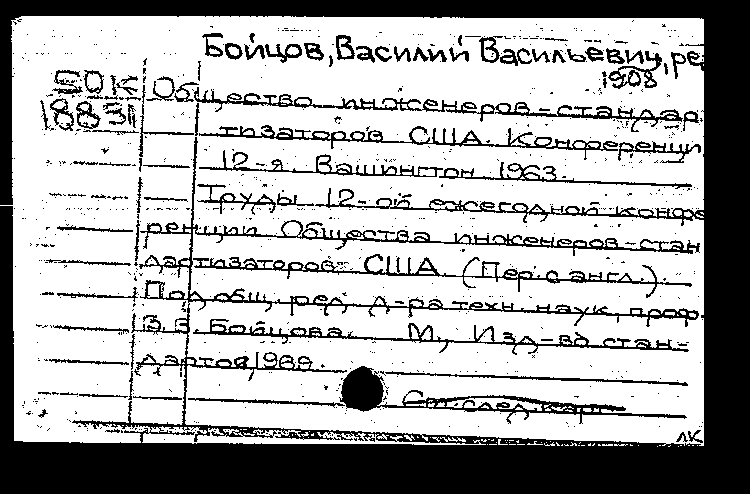 Бойцов, Василий Васильевич, ре
1908
50К
18831
Общество инженеров-стандар
тизаторов США. Конференци
12-я. Вашингтон 1963.
Труды 12-ой ежегодной конфе
ренции Общества инженеров-стан
дартизаторов США. (Пер. с англ.).
Под общ. ред. д-ра техн. наук, проф.
В.В. Бойцова. М., Изд-во стан-
дартов,
См. след. карт.
ЛК